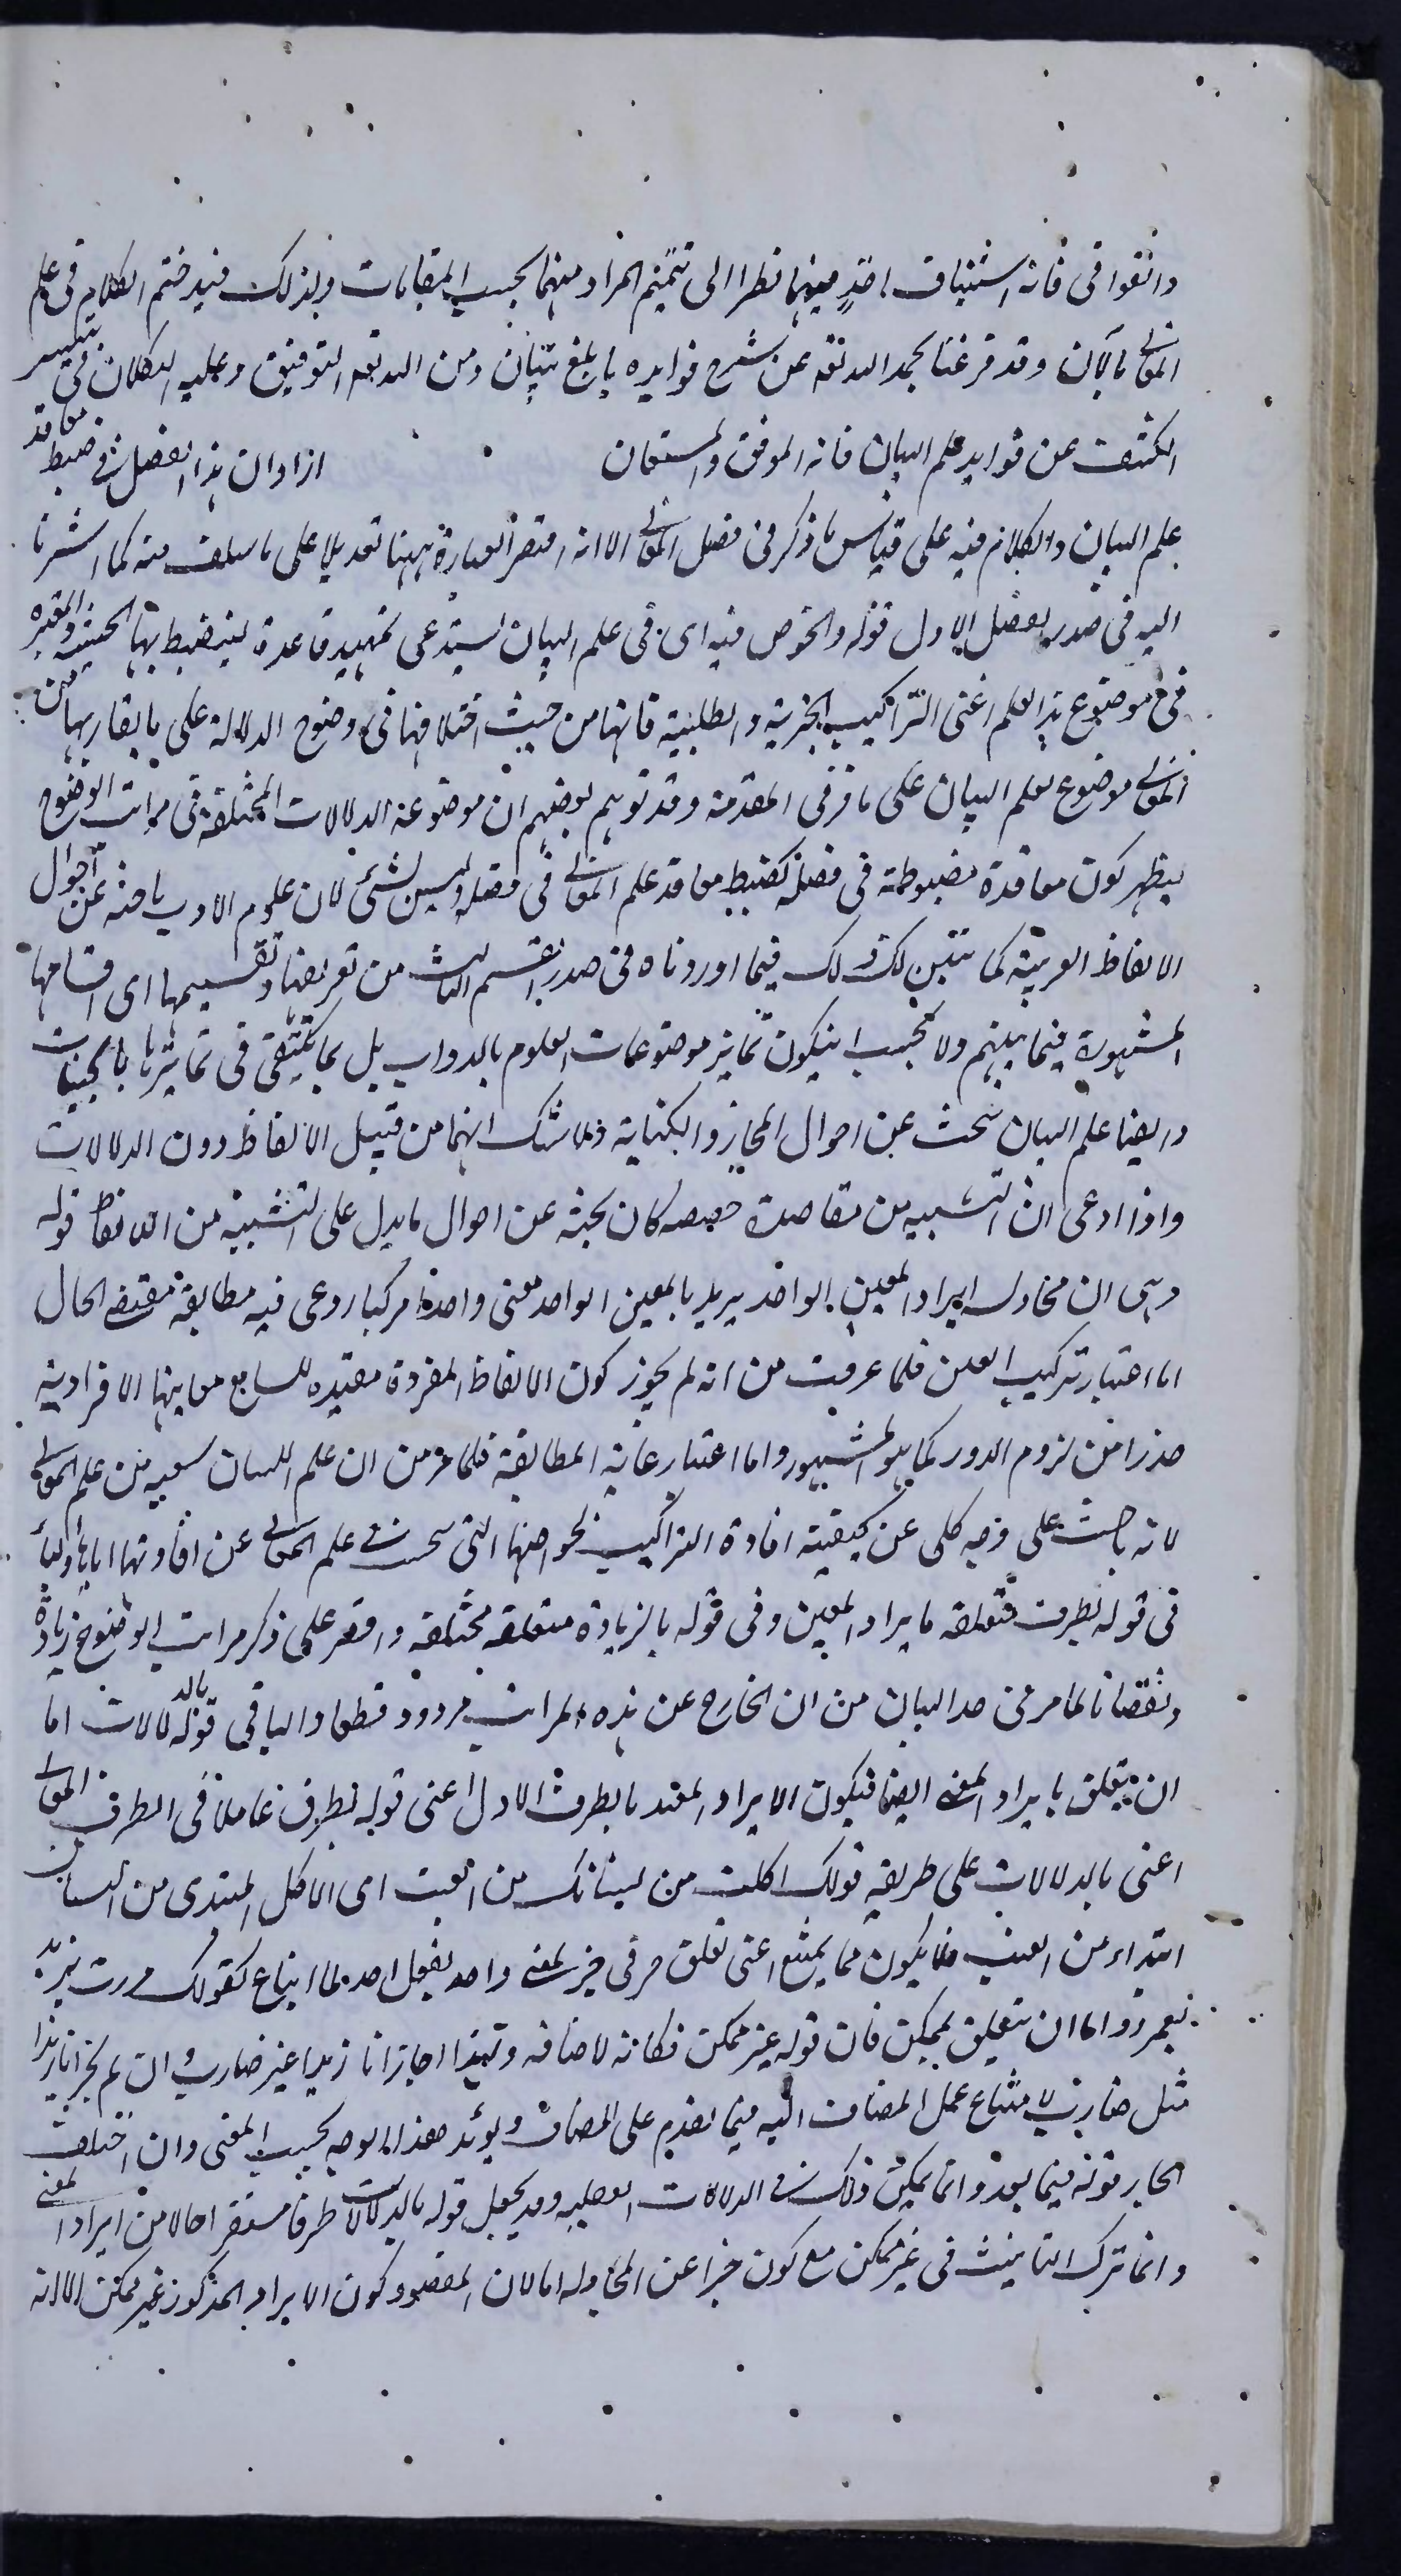 واتقوا في فانه استيناف اخذ فيهما نظرا الى تتميم المراد منهما بحسب المقامات ولذلك فيه ختم الكلام في علم
المعاني بالآن وقد فرغنا بحمد الله تعه عن شرح فوايده بابلغ تبيان ومن الله تعه التوفيق وعليه التكلان في تيسير
الكشف عن فوايد علم البيان فانه الموفق والمستعان اراد ان هذا الفصل في ضبط معاقد
علم البيان والكلام فيه على قياس ما ذكر في فصل المعاني الا انه اختصر العبارة ههنا تعديلا على ما سلف منه كما اشرنا
اليه في صدر الفصل الاول قوله والخوض فيه اى في علم البيان يستدعى تمهيد قاعدة لينضبط بها الحيثية المعتبرة
في موضوع هذا العلم اعنى التراكيب الخبرية والطلبية فانها من حيث اختلافها في وضوح الدلالة على ما يقاربها من
المعاني موضوع لعلم البيان على ما مر في المقدمة وقد توهم بعضهم ان موضوعه الدلالات المختلفة في مراتب الوضوح
ليظهر كون معاقده مضبوطة في فصله كضبط معاقد علم المعاني في فصله وليس بشئ لان علوم الادب باحثة عن احوال
الالفاظ العربية كما تبين لك ذلك فيما اوردناه في صدر القسم الثالث من تعريفها وتقسيمها اى اقسامها
المشهورة فيما بينهم ولا يجب ان يكون تمايز موضوعات العلوم بالذوات بل بما يكتفى في تمايزها بالحيثيات
وايضا علم البيان يبحث عن احوال المجاز والكناية ولا شك انهما من قبيل الالفاظ دون الدلالات
واذا ادعى ان التشبيه من مقاصده كان بحثه عن احوال ما يدل على التشبيه من الالفاظ قوله
وهى ان محاولة ايراد المعنى الواحد يريد بالمعنى الواحد معنى واحدا مركبا روعى فيه مطابقة مقتضى الحال
اما اعتبار تركيب المعنى فلما عرفت من انه لم يجوز كون الالفاظ المفردة مفيدة للسامع معانيها الافرادية
حذرا من لزوم الدور كما هو المشهور واما اعتبار رعاية المطابقة فلما مر من ان علم البيان شعبة من علم المعاني
لانه باحث على وجه كلى عن كيفية افادة التراكيب لخواصها التى يبحث في علم المعاني عن افادتها اياها والباء
في قوله بطرق متعلقه بايراد المعنى وفى قوله بالزيادة متعلقه مختلفه واقتصر على ذكر مراتب الوضوح زيادة
ونقصانا لما مر في حد البيان من ان الخارج عن هذه المراتب مردود قطعا والباقى قوله بالدلالات اما
ان يتعلق بايراد المعنى ايضا فيكون الايراد المقيد بالطرف الاول اعنى قوله بطرق عاملا في الطرف الثاني
اعنى بالدلالات على طريقة قولك اكلت من بستانك من العنب اى الاكل المبتدى من البستان
ابتداء من العنب فلا يكون مما يمتنع اعنى تعلق حرفى جر بمعنى واحد بفعل واحد بلا اتباع كقولك مررت بزيد
بعمرو واما ان يتعلق بممكن فان قوله غير ممكن فكانه لا اضافه ولهذا اجاز انا زيدا غير ضارب وان لم يجز انا زيدا
مثل ضارب لامتناع عمل المضاف اليه فيما تقدم على المضاف ويؤيد هذا الوجه بحسب المعنى وان اختلف
الجار قوله فيما بعد وانما يمكن ذلك في الدلالات العقلية وقد يجعل قوله بالدلالات ظرفا مستقرا حالا من ايراد المعنى
وانما ترك التانيث في غير ممكن مع كون خبرا عن المحاولة اما لان المقصود كون الايراد المذكور غير ممكن الا انه